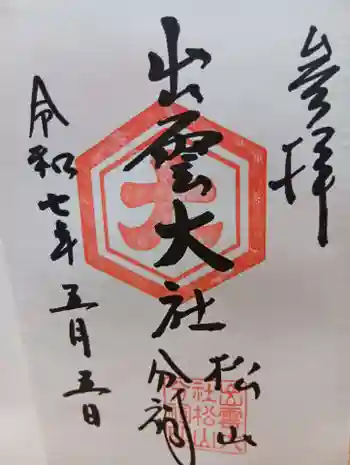 参拝
出雲大社
松山
分祠
令和七年五月五日
大
出雲大
社松山
分祠